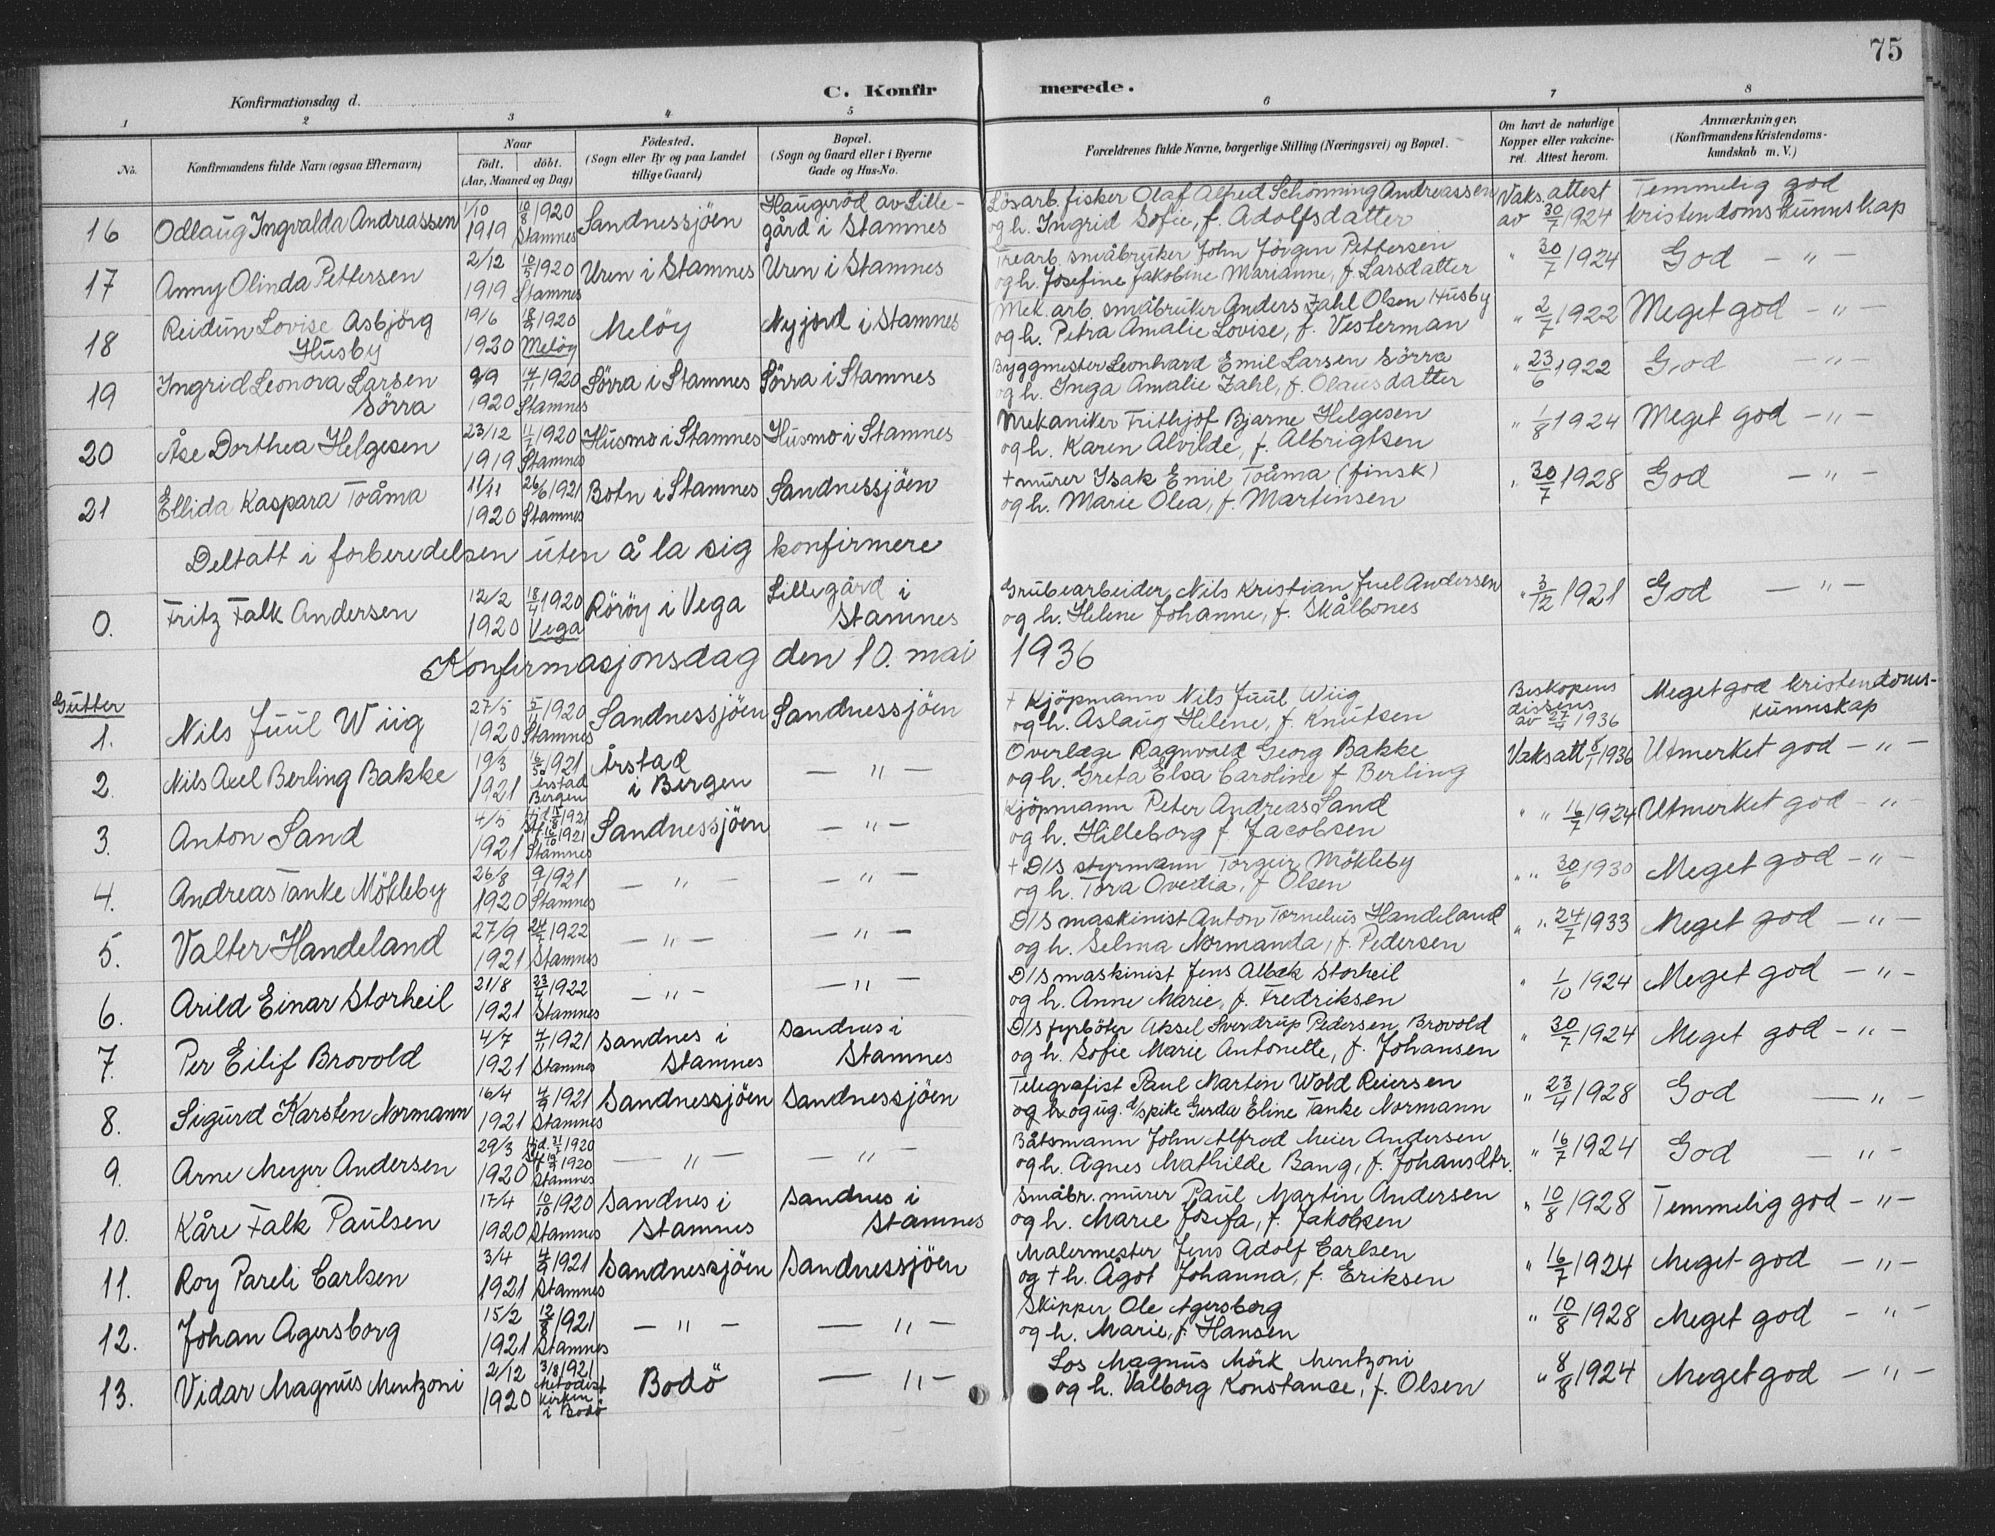 75
Konfirmationsdag d.
C. Konfirmerede.
1 2 3 4 5 6 7 8
No. Konfirmandens fulde Navn (ogsaa Efternavn) Naar født. døbt. (Aar, Maaned og Dag) Fødested. (Sogn eller By og paa Landet tillige Gaard) Bopæl. (Sogn og Gaard eller i Byerne Gade og Hus-No. Forældrenes fulde Navne, borgerlige Stilling (Næringsvei) og Bopæl. Om havt de naturlige Kopper eller vakcineret. Attest herom. Anmærkninger. (Konfirmandens Kristendomskundskab m. V.)
1/10 10/8 1920 Haugeröd av Lille- Lösarb. fisker Olaf Alfred Schönning Andreassen Vaks. attest Temmelig god
16 Odlaug Ingvalda Andreassen 1919 Stamnes Sandnessjöen gård i Stamnes og h. Ingrid Sofie, f. Adolfsdatter av 30/7 1924 kristendomskunnskap
2/12 1920 Trearb. småbruker John Jörgen Pettersen
17 Anny Olinda Pettersen 1919 Stamnes Uren i Stamnes Uren i Stamnes og h. Josefine Jakobine Marianne, f. Larsdatter " 30/7 1924 God — " —
Reidun Lovise Asbjörg 19/6 1920 Mek. arb. småbruker Anders Zahl Olsen Husby
18 Husby 1920 Melöy Melöy Nyjord i Stamnes og h. Petra Amalie Lovise, f. Vesterman " 2/7 1922 Meget god — " —
Ingrid Leonora Larsen 9/9 1920 Byggmester Leonhard Emil Larsen Sörra
19 Sörra 1920 Stamnes Sörra i Stamnes Sörra i Stamnes og h. Inga Amalie Zahl, f. Olausdatter " 23/6 1922 God — " —
23/12 1920 Mekaniker Frithjof Bjarne Helgesen
20 Åse Dorthea Helgesen 1919 Stamnes Husmo i Stamnes Husmo i Stamnes og h. Karen Alvilde, f. Albrigtsen " 1/8 1924 Meget god — " —
11/11 26/6 1921 + murer Isak Emil Toåma (finsk)
21 Ellida Kaspara Toåma 1920 Stamnes Botn i Stamnes Sandnessjöen og h. Marie Olea, f. Martinsen " 30/7 1928 God — " —
Deltatt i forberedelsen uten å la sig konfirmere
12/2 18/4 1920 Lillegård i Grubearbeider Nils Kristian Juel Andersen
0. Fritz Falk Andersen 1920 Vega Röröy i Vega Stamnes og h. Helene Johanne, f. Skålbones " 3/12 1921 God — " —
Konfirmasjonsdag den 10. mai 1936
Gutter 27/5 1920 + Kjöpmann Nils Juul Wiig Biskopens dissens Meget god kristendoms-
1. Nils Juul Wiig 1920 Stamnes Sandnessjöen Sandnessjöen og h. Aslaug Helene, f. Knutsen av 27/4 1936 kunnskap
19/3 1921 Årstad Overlæge Ragnvald Georg Bakke
2. Nils Axel Berling Bakke 1921 Årstad Bergen i Bergen — " — og h. Greta Elsa Caroline f Berling Vaksatt 8/1 1936 Utmerket god — " —
4/5 1921 Kjöpmann Peter Andreas Sand
3. Anton Sand 1921 Stamnes Sandnessjöen — " — og h. Hilleborg f Jacobsen " " 16/7 1924 Utmerket god — " —
26/8 9/1 1921 + D/S styrmann Torgeir Mökleby
4. Andreas Tanke Mökleby 1920 Stamnes — " — — " — og h. Tora Ovedia, f Olsen " " 30/6 1930 Meget god — " —
27/9 1922 D/S maskinist Anton Tornelius Handeland
5. Valter Handeland 1921 Stamnes — " — — " — og h. Selma Normanda, f. Pedersen " " 24/7 1933 Meget god — " —
21/8 23/4 1922 D/S maskinist Jens Albek Storheil
6. Arild Einar Storheil 1921 Stamnes — " — — " og h. Anne Marie, f. Fredriksen " 1/10 1924 Meget god — " —
4/7 1921 Sandnes i Sandnes i D/S fyrböter Aksel Sverdrup Pedersen Brovold
7. Per Eilif Brovold 1921 Stamnes Stamnes Stamnes og h. Sofie Marie Antonette, f. Johansen " 30/7 1924 Meget god — " —
16/4 4/9 1921 Telegrafist Paul Martin Wold Reiersen
8. Sigurd Karsten Normann 1921 Stamnes Sandnessjöen Sandnessjöen og ug. d/spike Gerda Eline Tanke Normann " 23/4 1928 God — " —
29/3 1920 Båtsmann John Alfred Meier Andersen
9. Arne Meyer Andersen 1920 Stamnes — " — — " — og h. Agnes Mathilde Bang, f. Johansdtr. " 16/7 1924 God — " —
17/4 10/10 1920 Sandnes i Sandnes i Småbr. murer Paul Martin Andersen
10. Kåre Falk Paulsen 1920 Stamnes Stamnes Stamnes og h. Marie Josefa, f. Jakobsen " 10/8 1928 Temmelig god — " —
3/4 4/9 1921 Malermester Jens Adolf Carlsen
11. Roy Pareli Carlsen 1921 Stamnes Sandnessjöen Sandnessjöen og + h. Ågot Johanna, f. Eriksen " 16/7 1924 Meget god — " —
15/2 12/8 1921 Skipper Ole Agersborg
12. Johan Agersborg 1921 Stamnes — " — — " — og h. Marie, f. Hansen " 10/8 1928 Meget god — " —
2/12 3/8 1921 Metodist Los Magnus Mörk Mentzoni
13. Vidar Magnus Mentzoni 1920 kirken i Bodö Bodö — " — og h. Valborg Konstance, f. Olsen " 8/8 1924 Meget god — " —